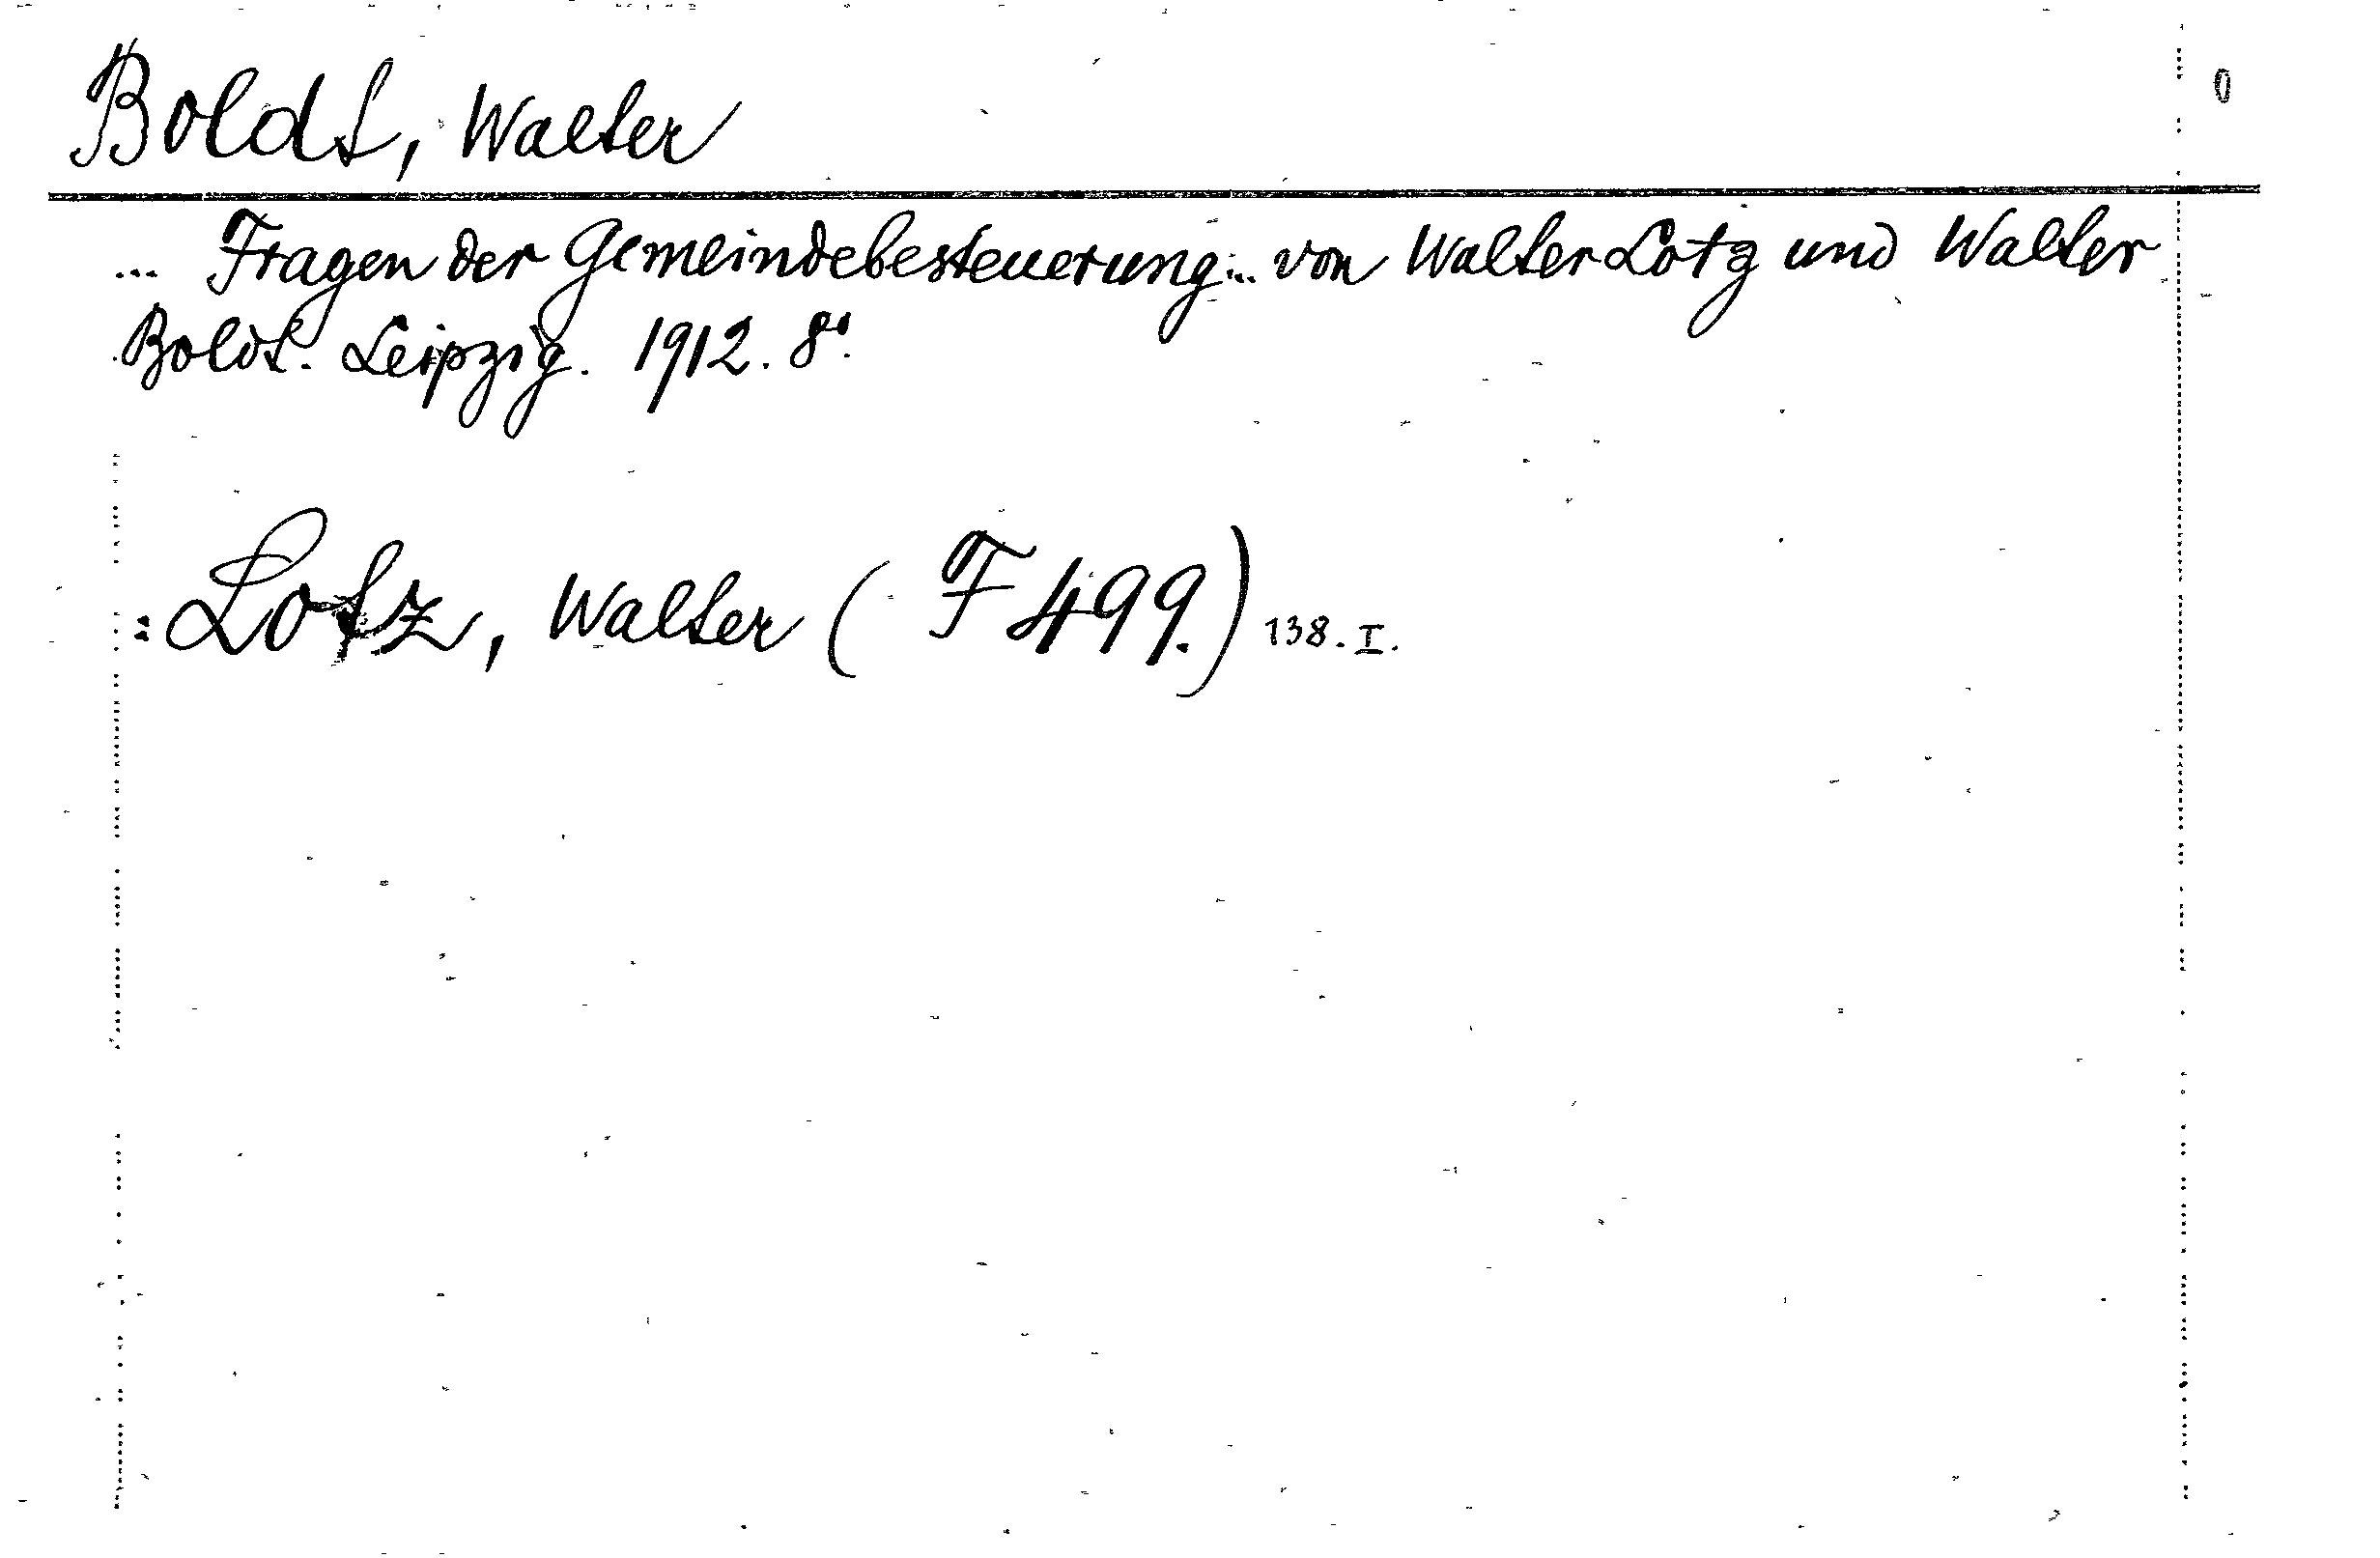 Boldt, Walter
0
... Fragen der Gemeindebesteuerung... von Walter Lotz und Walter
Boldt. Leipzig. 1912. 8°.
: Lotz, Walter (F 499.) 138. I.